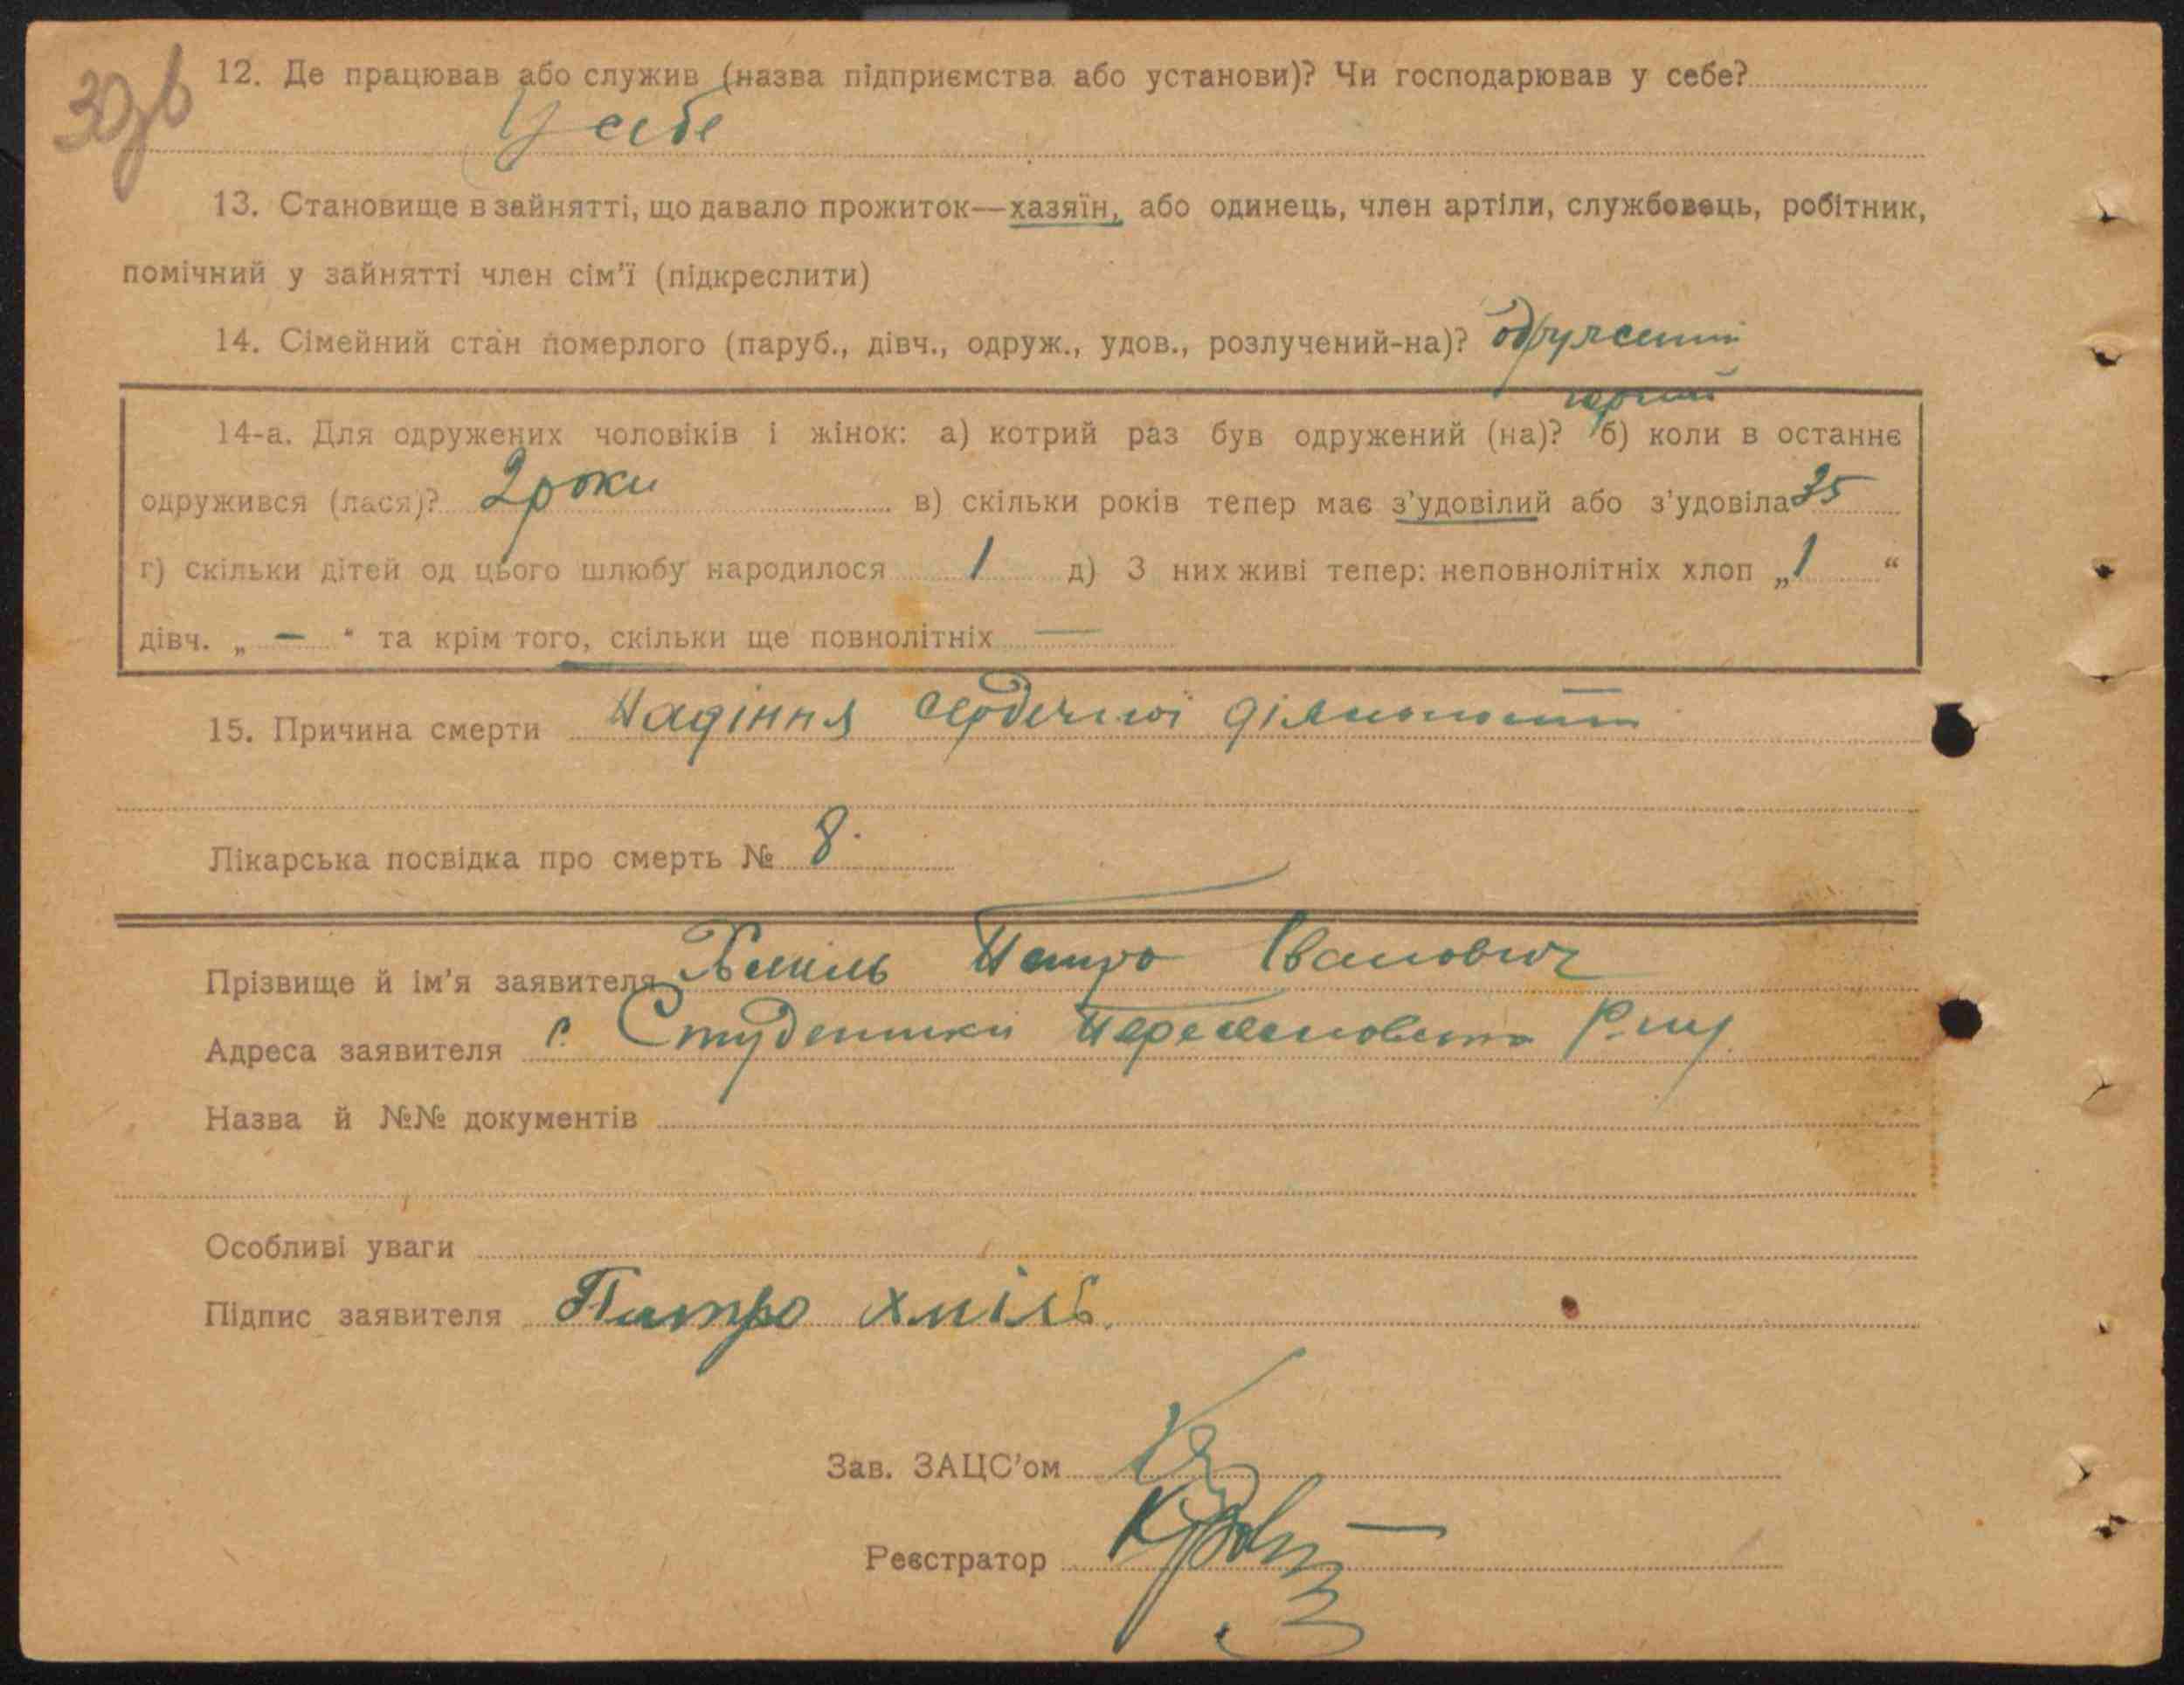 30зв
12. Де працював або служив (назва підприємства або установи)? Чи господарював у себе?
У себе
13. Становище в зайнятті, що давало прожиток—хазяїн, або одинець, член артіли, службовець, робітник,
помічний у зайнятті член сім'ї (підкреслити)
14. Сімейний стан померлого (паруб., дівч., одруж., удов., розлучений-на)? одружений
14-а. Для одружених чоловіків і жінок: а) котрий раз був одружений (на)? перший б) коли в останнє
одружився (лася)? 2 роки в) скільки років тепер має з'удовілий або з'удовіла 35
г) скільки дітей од цього шлюбу народилося 1 д) З них живі тепер: неповнолітніх хлоп „1“
дівч. „ — “ та крім того, скільки ще повнолітніх —
15. Причина смерти Падіння сердечної діяльности
Лікарська посвідка про смерть № 8.
Прізвище й ім'я заявителя Хміль Петро Іванович
Адреса заявителя с. Студеники Переяслов
Назва й №№ документів
Особливі уваги
Підпис заявителя Петро Хміль.
Зав. ЗАЦС'ом
Реєстратор